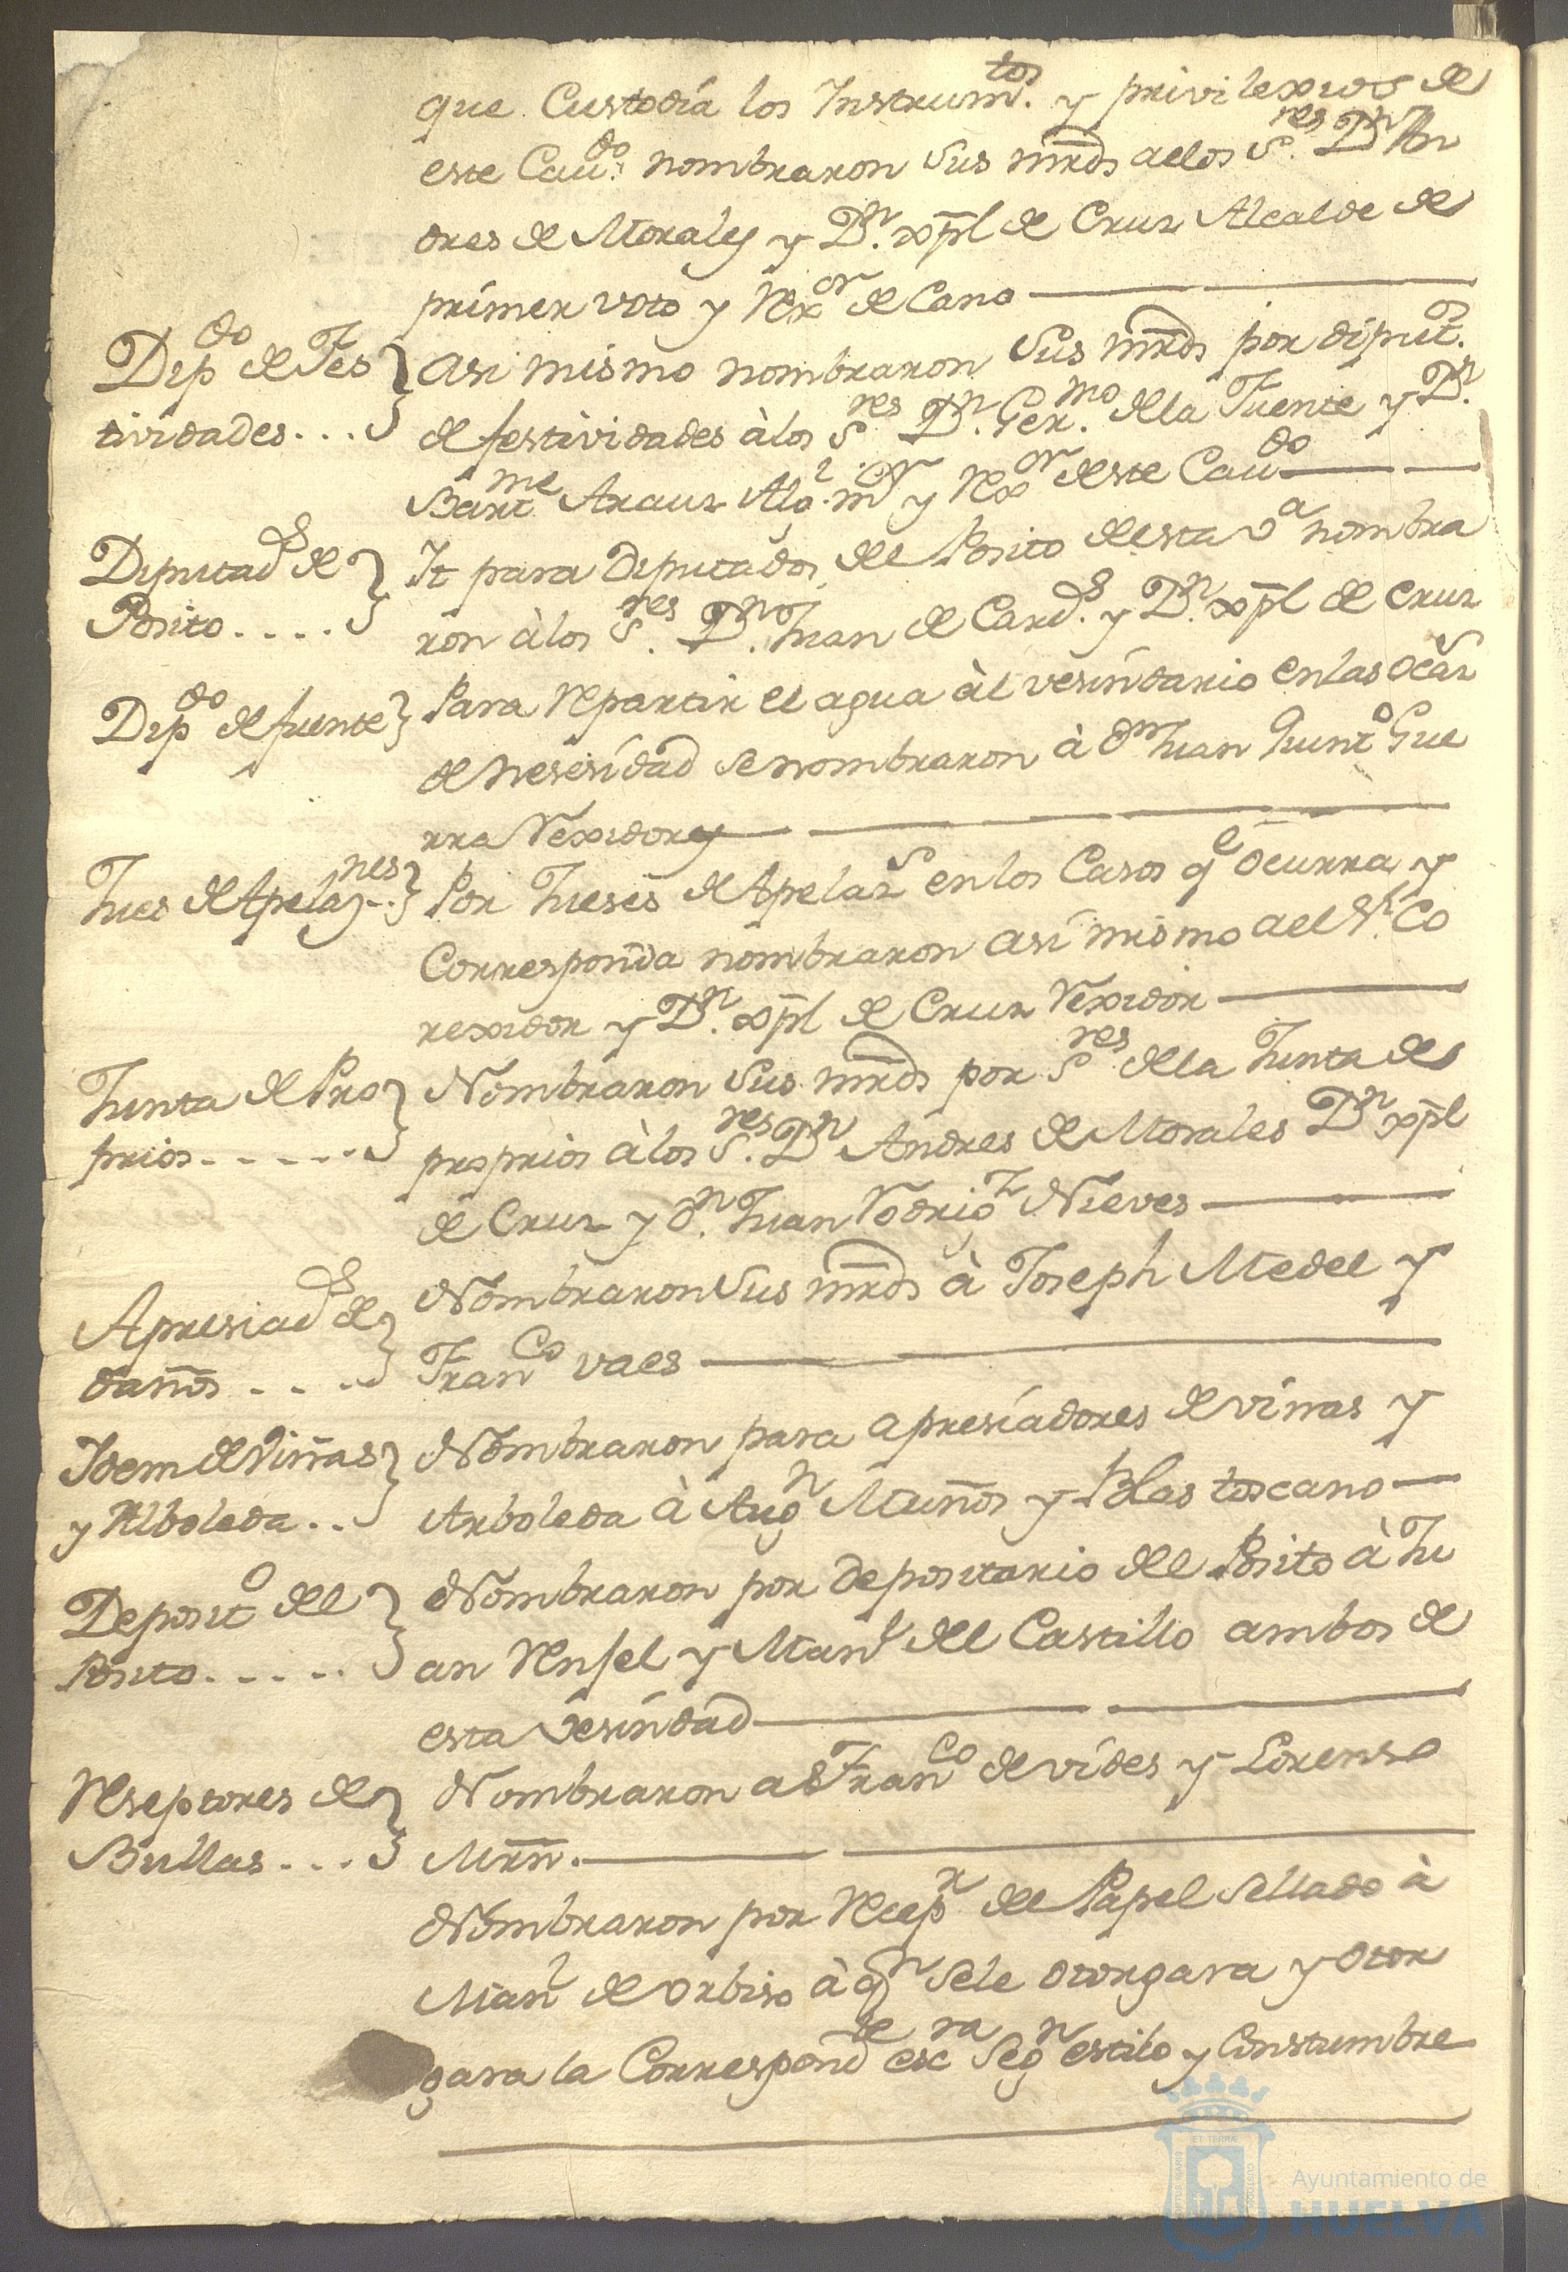 que Custodia los Instrum.tos y privilexios de
este Cau.do nombraron sus mrds a los S.res Dn An
dres de Morales y Dn. xpl de Cruz Alcalde de
primer voto y Rex.or de Cano
Dip.do de Fes
tividades...
asi mismo nombraron sus mrds por diput.os
de festividades à los S.res Dn. Ger.mo de la Fuente y Dn.
Bart.me Arauz Alg.l m.or y Rex.or de este Cau.do
Diputad.s de
Posito....
It para Diputados del Posito de esta v.a nombra
ron à los S.res Dn. Juan de Card.s y Dn. xpl de Cruz
Dip.do de fuente
Para repartir el agua àl vesindario en las ocas.s
de nesesidad se nombraron à dn Juan Quint.o Gue
rra Rexidores
Jues de Apelaz.nes
Por Jueses de Apelaz.s en los Casos q.e ocurra y
Corresponda nombraron asi mismo a el S.r Co
rrexidor y Dn. xpl de Cruz Rexidor
Junta de Pro
prios.....
Nombraron sus mrds por S.res de la Junta de
proprios à los S.res Dn Andres de Morales Dn xpl
de Cruz y dn. Juan Rodrig.z Nieves
Apresiad.s de
daños....
Nombraron sus mrds à Joseph Medel y
Fran.co vaes
Idem de Viñas
y Alboleda..
Nombraron para apresiadores de viñas y
Arboleda à Aug.n Muños y Blas toscano
Deposit.o del
Posito.....
Nombraron por depositario del Posito à Ju
an Rensel y Man.l del Castillo ambos de
esta vesindad
Reseptores de
Bullas...
Nombraron a Fran.co de vides y Lorenso
Mrn.
Nombraron por Recep.r del Papel sellado à
Man.l de Orbiso à q.n se le otorgara y otor
gara la Correspond.te esc.ra seg.n estilo y Constumbre
Ayuntamiento de
HUELVA